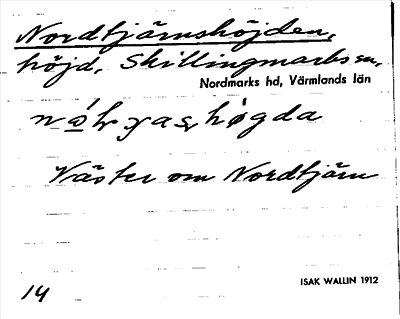 Nordtjärnshöjden,
höjd, Skillingmarks sn,
Nordmarks hd, Värmlands län
Väster om Nordtjärn
ISAK WALLIN 1912
14